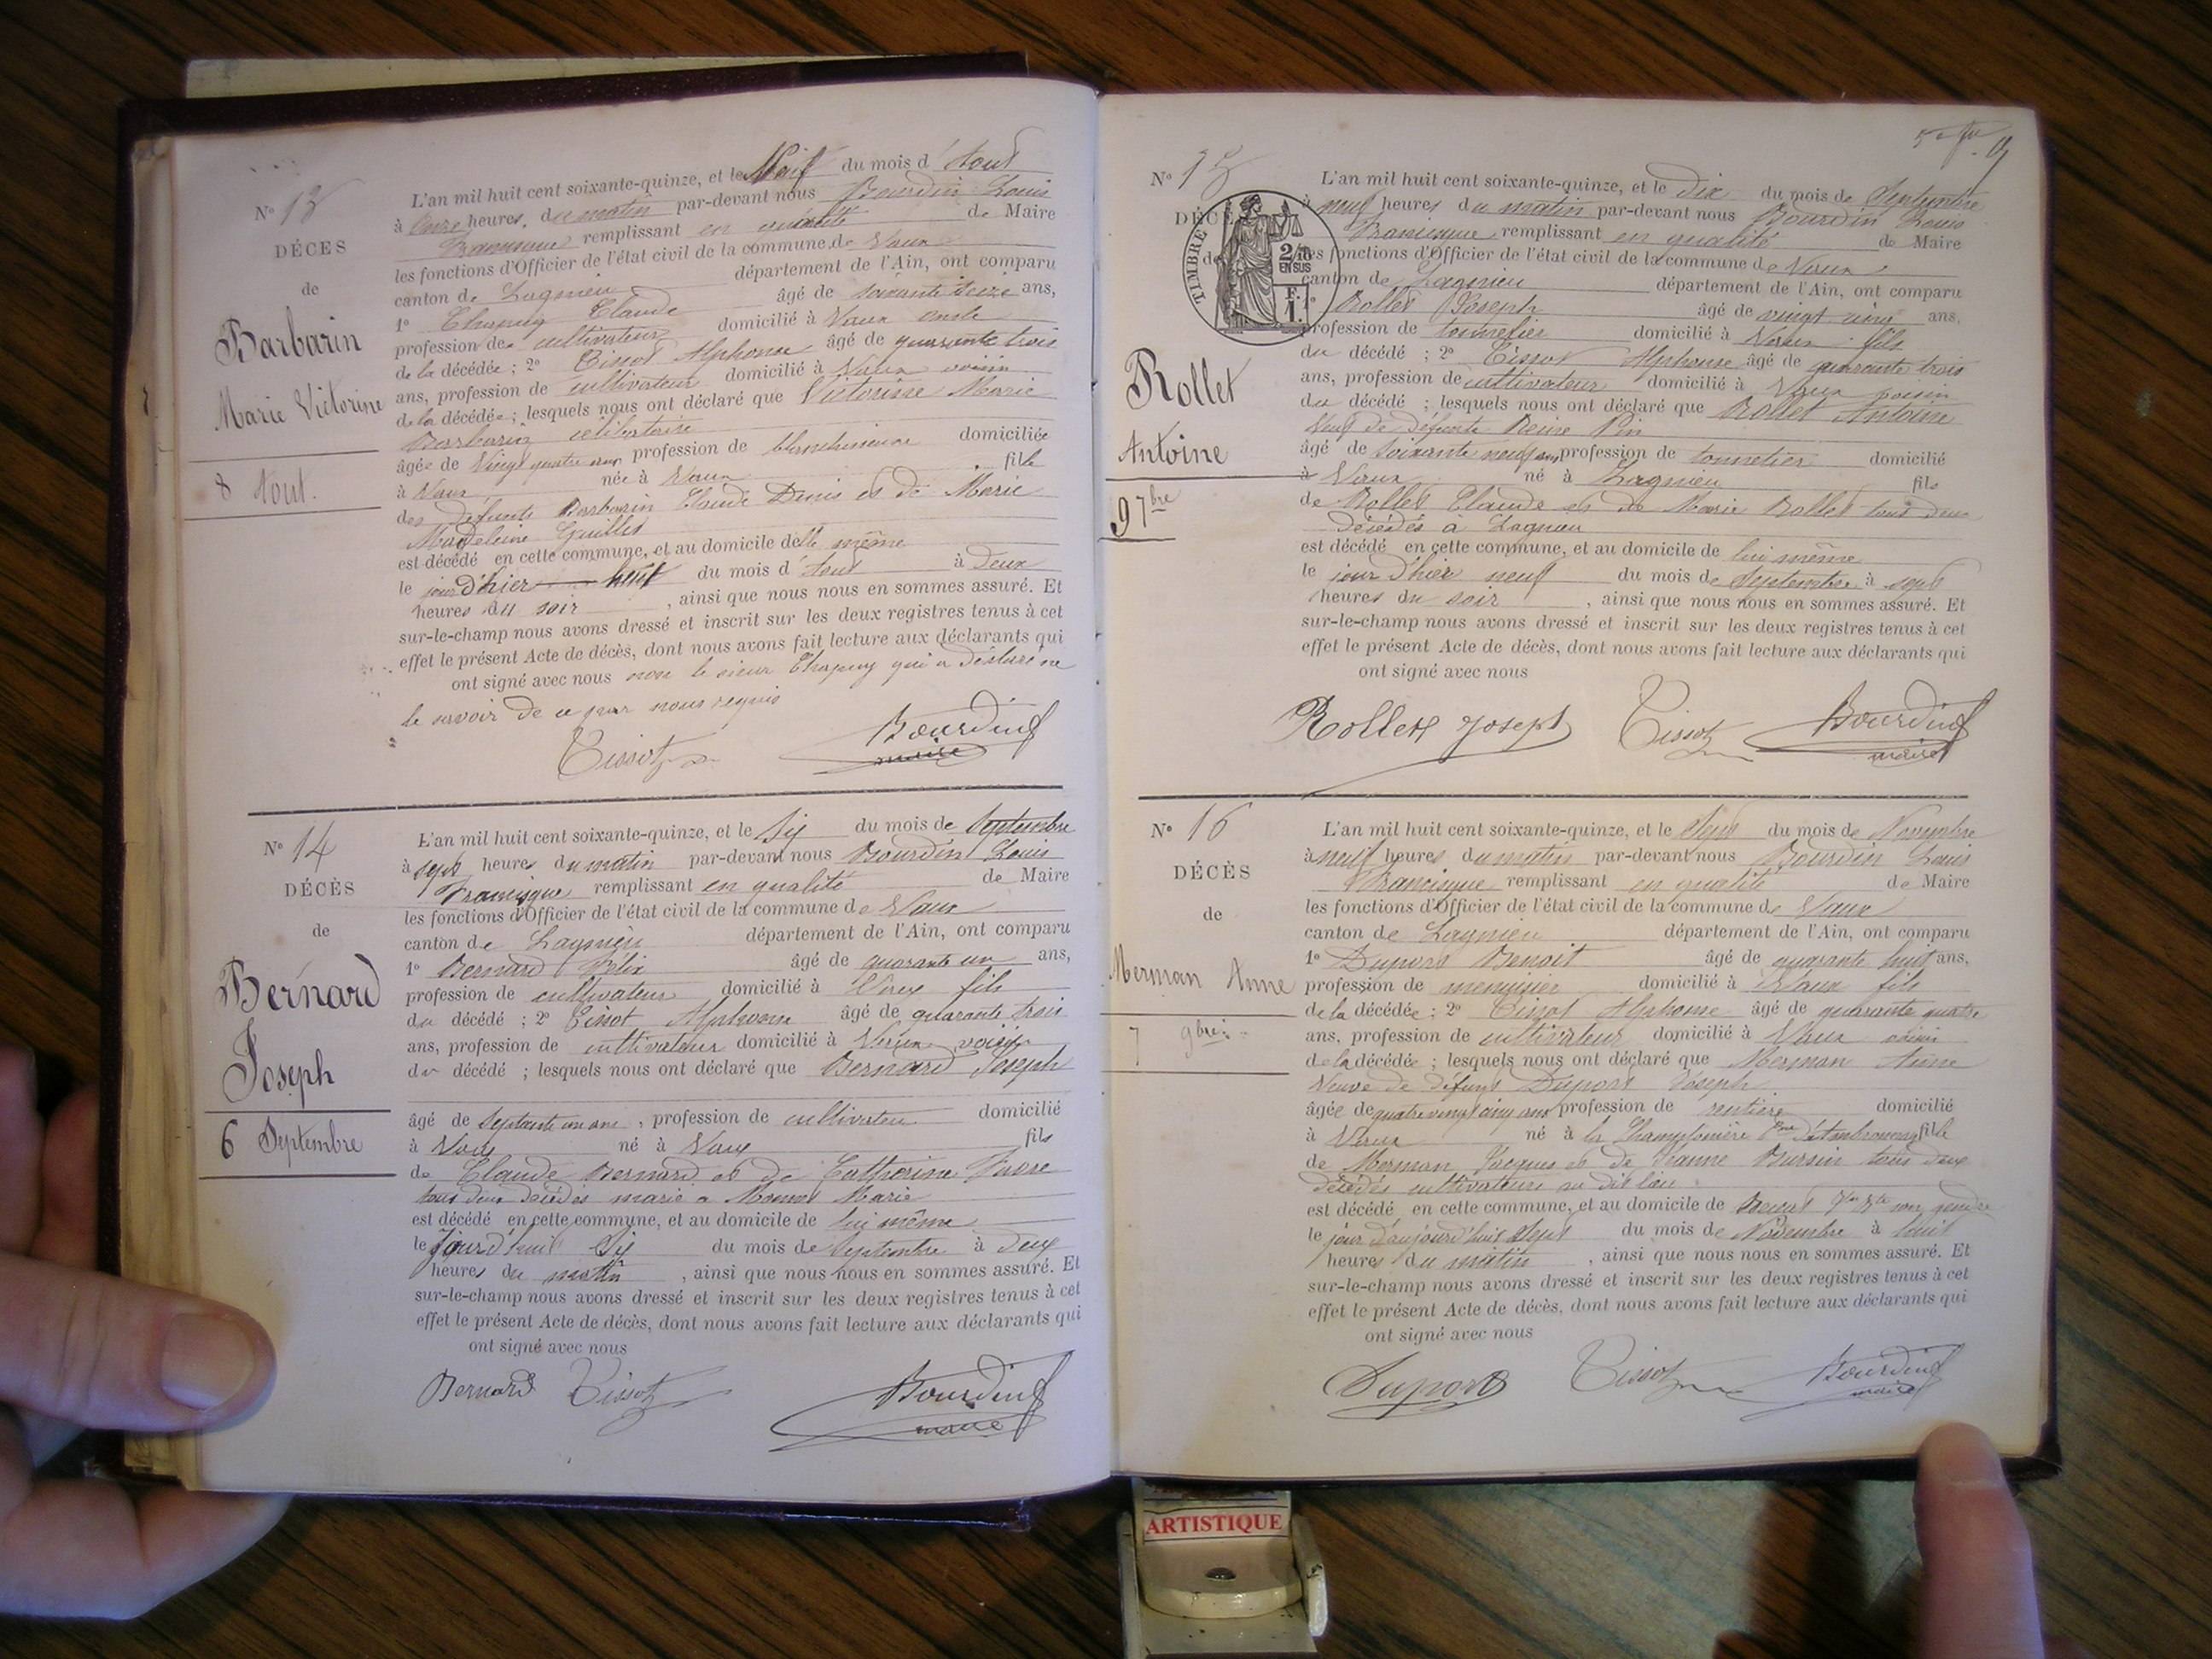 N° 13
DÉCES
de
Barbarin
Marie Victorine
8 Aout.
L'an mil huit cent soixante-quinze, et le Neuf du mois d'Aout
à Onze heures, du matin par-devant nous Bourdin Louis
Francisque remplissant en qualité de Maire
les fonctions d'Officier de l'état civil de la commune de Vaux
canton de Lagnieu département de l'Ain, ont comparu
1° Chapuy Claude âgé de soixante seize ans,
profession de cultivateur domicilié à Vaux oncle
de la décédée ; 2° Tissot Alphonse âgé de quarante trois
ans, profession de cultivateur domicilié à Vaux voisin
de la décédée ; lesquels nous ont déclaré que Victorine Marie
Barbarin célibataire
âgée de Vingt quatre ans profession de blanchisseuse domiciliée
à Vaux née à Vaux fille
des défunts Barbarin Claude Denis et de Marie
Madeleine Guillet
est décédé en cette commune, et au domicile de elle même
le jour d'hier huit du mois d'Aout à Deux
heures du soir , ainsi que nous nous en sommes assuré. Et
sur-le-champ nous avons dressé et inscrit sur les deux registres tenus à cet
effet le présent Acte de décès, dont nous avons fait lecture aux déclarants qui
ont signé avec nous non le sieur Chapuy qui a déclaré ne
le savoir de ce par nous requis
Tissot Bourdin f
maire
N° 14
DÉCÈS
de
Bernard
Joseph
6 Septembre
L'an mil huit cent soixante-quinze, et le Six du mois de Septembre
à sept heures du matin par-devant nous Bourdin Louis
Francisque remplissant en qualité de Maire
les fonctions d'Officier de l'état civil de la commune de Vaux
canton de Lagnieu département de l'Ain, ont comparu
1° Bernard Félix âgé de quarante un ans,
profession de cultivateur domicilié à Vaux fils
du décédé ; 2° Tissot Alphonse âgé de quarante trois
ans, profession de cultivateur domicilié à Vaux voisin
du décédé ; lesquels nous ont déclaré que Bernard Joseph
âgé de Septante un ans , profession de cultivateur domicilié
à Vaux né à Vaux fils
de Claude Bernard et de Catherine Favre
tous deux décédés marié a Marie
est décédé en cette commune, et au domicile de lui même
le Jourd'hui Six du mois de Septembre à deux
heures du matin , ainsi que nous nous en sommes assuré. Et
sur-le-champ nous avons dressé et inscrit sur les deux registres tenus à cet
effet le présent Acte de décès, dont nous avons fait lecture aux déclarants qui
ont signé avec nous
Bernard Tissot Bourdin f
maire
9
N° 15
DÉCÈ
de
TIMBRE
2/10
EN SUS
F.
1.
Rollet
Antoine
9 7bre
L'an mil huit cent soixante-quinze, et le Dix du mois de Septembre
à neuf heures du matin par-devant nous Bourdin Louis
Francisque remplissant en qualité de Maire
les fonctions d'Officier de l'état civil de la commune de Vaux
canton de Lagnieu département de l'Ain, ont comparu
1° Rollet Joseph âgé de vingt cinq ans,
profession de tonnelier domicilié à Vaux fils
du décédé ; 2° Tissot Alphonse âgé de quarante trois
ans, profession de cultivateur domicilié à Vaux voisin
du décédé ; lesquels nous ont déclaré que Rollet Antoine
Veuf de défunte Reine Pin
âgé de Soixante neuf ans profession de tonnelier domicilié
à Vaux né à Lagnieu fils
de Rollet Claude et de Marie Rollet tous deux
décédés à Lagnieu
est décédé en cette commune, et au domicile de lui même
le jour d'hier neuf du mois de Septembre à sept
heures du soir , ainsi que nous nous en sommes assuré. Et
sur-le-champ nous avons dressé et inscrit sur les deux registres tenus à cet
effet le présent Acte de décès, dont nous avons fait lecture aux déclarants qui
ont signé avec nous
Rollet Joseph Tissot Bourdin f
maire
N° 16
DÉCÈS
de
Merman Anne
7 9bre
L'an mil huit cent soixante-quinze, et le Sept du mois de Novembre
à neuf heures du matin par-devant nous Bourdin Louis
Francisque remplissant en qualité de Maire
les fonctions d'Officier de l'état civil de la commune de Vaux
canton de Lagnieu département de l'Ain, ont comparu
1° Duport Benoit âgé de quarante huit ans,
profession de menuisier domicilié à Vaux fils
de la décédée ; 2° Tissot Alphonse âgé de quarante quatre
ans, profession de cultivateur domicilié à Vaux voisin
de la décédée ; lesquels nous ont déclaré que Merman Anne
Veuve de défunt Duport Joseph
âgée de quatre vingt cinq ans profession de rentière domicilié
à Vaux né à la fille
de Merman Jacques et de Jeanne Bursin tous deux
décédés cultivateurs au dit lieu
est décédé en cette commune, et au domicile de son gendre
le jour d'aujourd'hui Sept du mois de Novembre à huit
heures du matin , ainsi que nous nous en sommes assuré. Et
sur-le-champ nous avons dressé et inscrit sur les deux registres tenus à cet
effet le présent Acte de décès, dont nous avons fait lecture aux déclarants qui
ont signé avec nous
Duport Tissot Bourdin f
maire
ARTISTIQUE